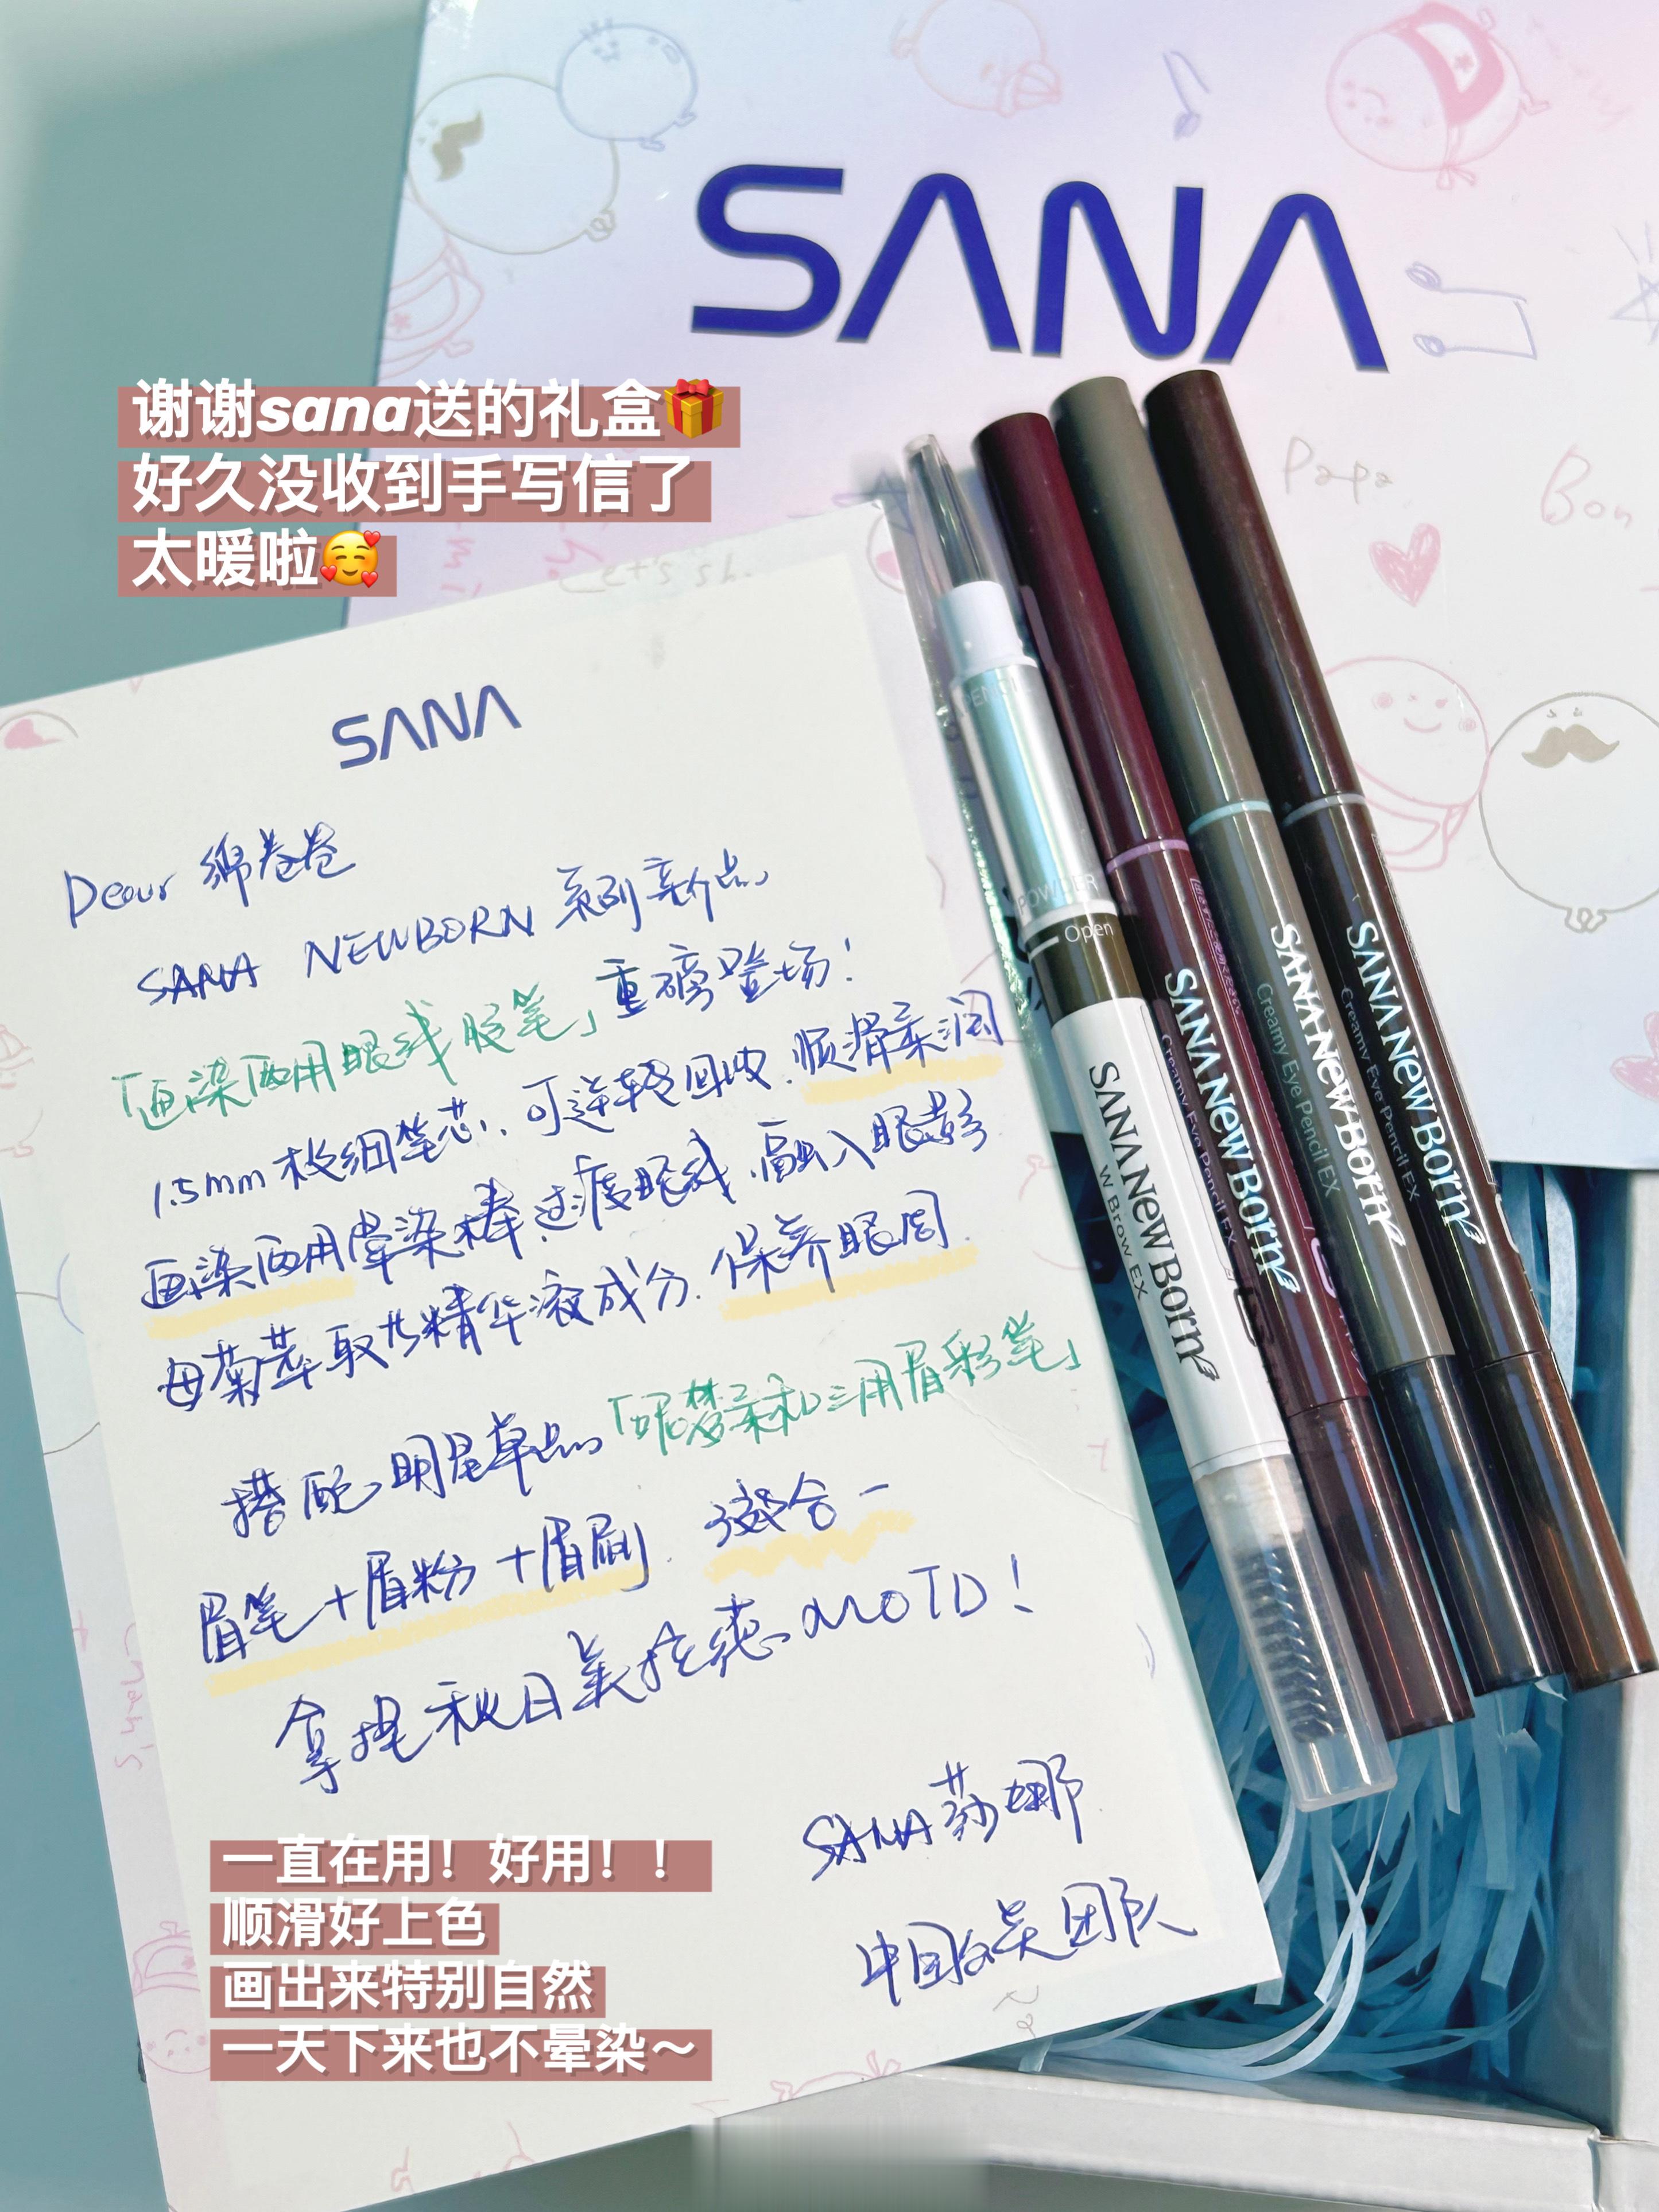 SANA
谢谢sana送的礼盒🎁
好久没收到手写信了
太暖啦🥰
Papa
Bon
SANA
Dear 绵卷卷
SANA NEWBORN 系列新品
「画染两用眼线胶笔」重磅登场！
1.5mm 极细笔芯，可逆转回收，顺滑柔润
画染两用晕染棒，过渡眼线，融入眼影
母菊萃取物精华液成分，保养眼周
搭配明星单品「妮梦柔和三用眉彩笔」
眉笔+眉粉+眉刷 3效合一
拿捏秋日美拉德MOTD！
SANA莎娜
中国公关团队
PENCIL
POWDER
Open
SANA New Born
W Brow EX
SANA New Born
Creamy Eye Pencil EX
SANA New Born
Creamy Eye Pencil EX
SANA New Born
Creamy Eye Pencil EX
一直在用！好用！！
顺滑好上色
画出来特别自然
一天下来也不晕染～